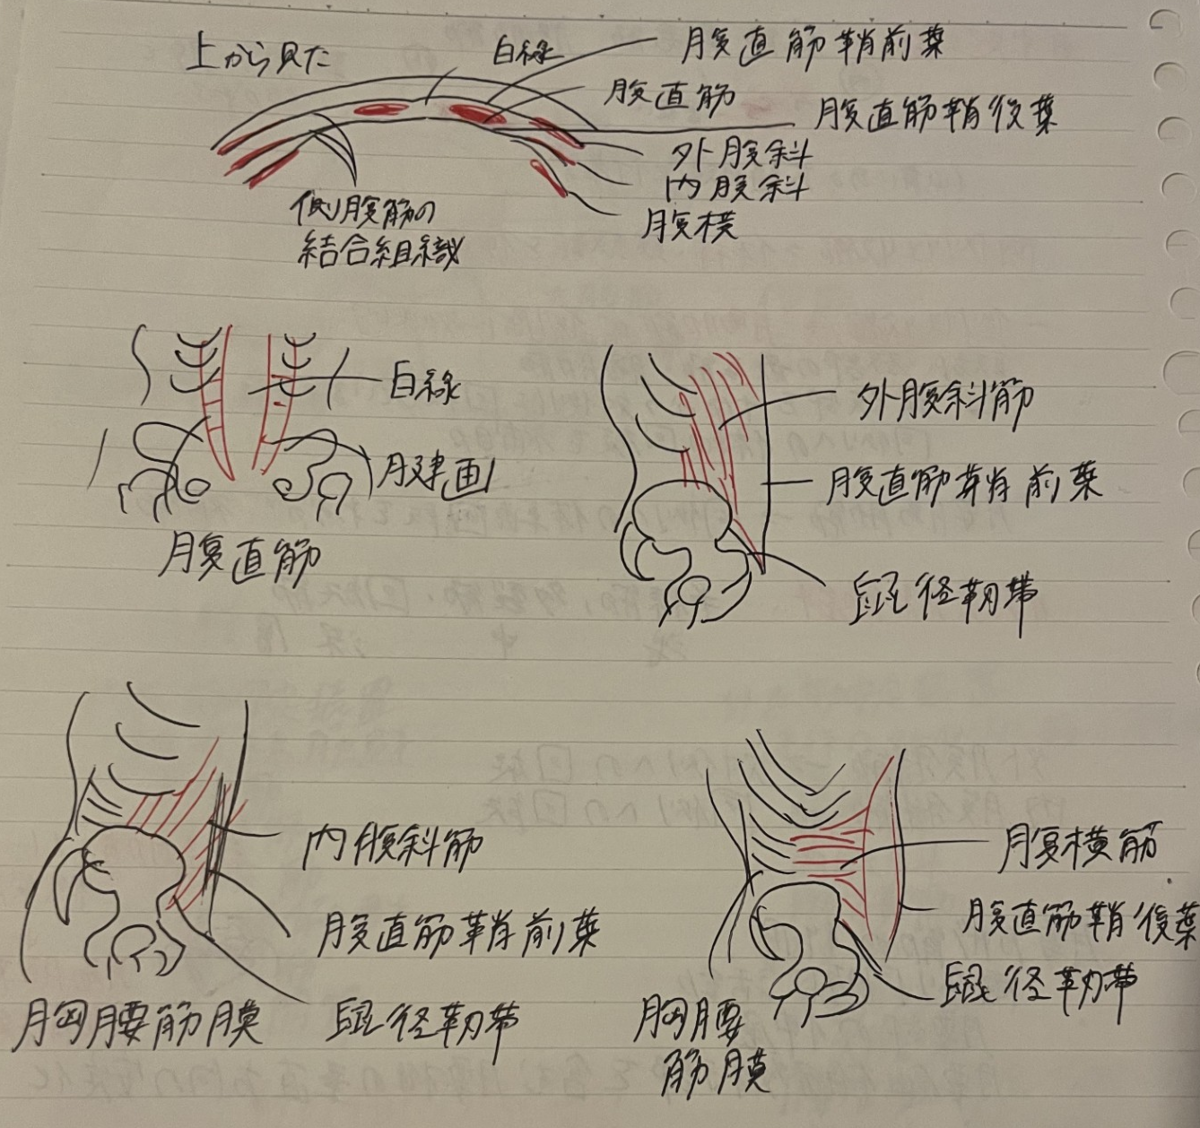 上から見た
白線
腹直筋鞘前葉
腹直筋
腹直筋鞘後葉
外腹斜
内腹斜
腹横
側腹筋の
結合組織
白線
腱画
腹直筋
外腹斜筋
腹直筋鞘前葉
鼠径靭帯
内腹斜筋
腹直筋鞘前葉
胸腰筋膜
鼠径靭帯
腹横筋
腹直筋鞘後葉
鼠径靭帯
胸腰
筋膜